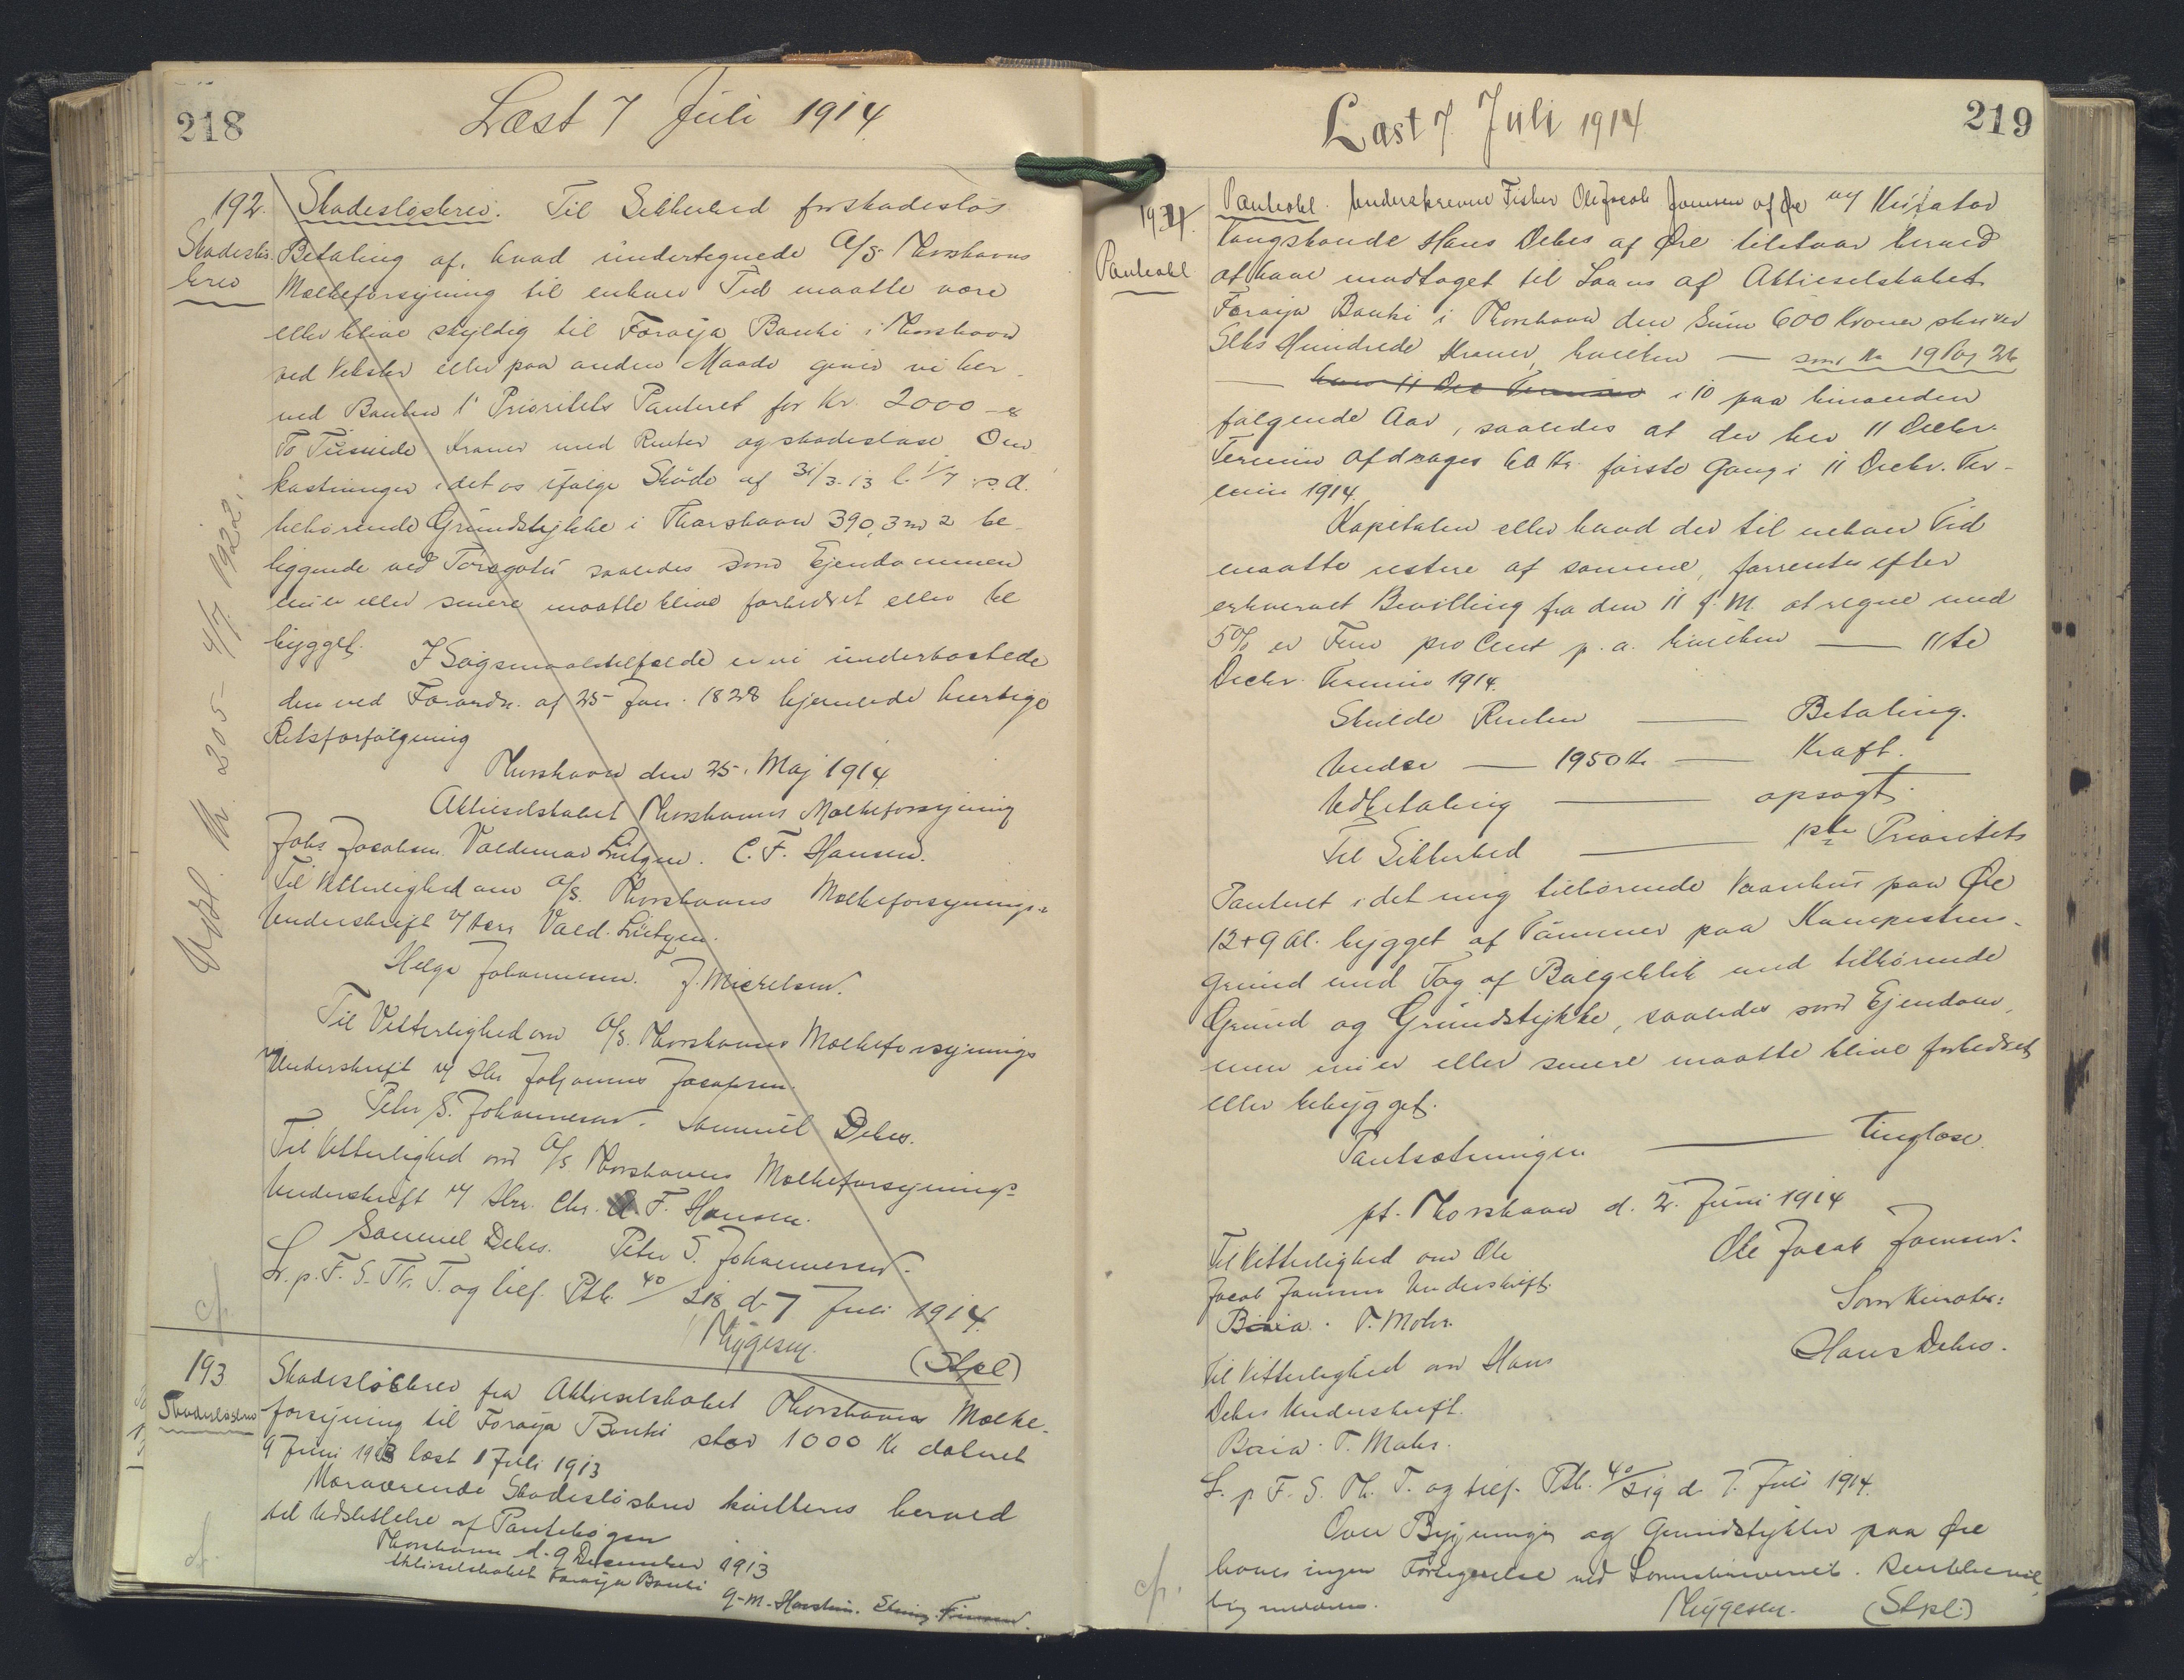 218
Læst 7 Juli 1914
192.
Skadesløsbrev. Til Sikkerhed for skadesløs
Skadesløs-
brev
Betaling af, hvad undertegnede A/S Thorshavns
Mælkeforsyning til enhver Tid maatte være
eller blive skyldig til Føroya Banki i Thorshavn
ved Veksler eller paa anden Maade giver vi her-
ved Banken 1' Prioritets Panteret for Kr. 2000 - er
To Tusinde Kroner med Renter og skadesløse Om
kostninger i det os ifølge Skøde af 31/3. 13 l. 1/7 s.d.
tilhørende Grundstykke i Thorshavn 390,3 m2 be-
liggende ved Torsgøtu saaledes som Ejendommen
nu er eller senere maatte blive forbedret eller be
bygget.
I Søgsmaalstilfælde er vi underkastede
den ved Forordn. af 25 Jan. 1828 hjemlede hurtige
Retsforfølgning
Thorshavn den 25. Maj 1914
Aktieselskabet Thorshavns Mælkeforsyning
Johs Jacobsen. Valdemar Lützen. C. F. Hansen.
Til Vitterlighed om A/S. Thorshavns Mælkeforsynings
Underskrift v/ Herr Vald. Lützen.
Helga Johannesen. J. Mickelsen.
Til Vitterlighed om A/S. Thorshavns Mælkeforsynings
Underskrift v/ Hr. Johannes Jacobsen.
Peter S. Johannesen. Samuel Debes.
Til Vitterlighed om A/S Thorshavns Mælkeforsynings
Underskrift v/ Hr. Chr. F. Hansen.
Samuel Debes. Peter S. Johannesen.
L. p. F. S. Th. T. og tilf. Ptb. 40/218 d. 7 Juli 1914.
Mygesen.
(Stpl)
Udsl. Nr. 205 - 4/7 1922.
cf.
193
Skadesløsbrev
Skadesløsbrev fra Aktieselskabet Thorshavns Mælke-
forsyning til Føroya Banki stor 1000 Kr dateret
9 Juni 1913 læst 1 Juli 1913
Nærværende Skadesløsbrev kvitteres herved
til Udslettelse af Pantebogen
Thorshavn d. 9 December 1913
Aktieselskabet Føroya Banki
cf.
219
Læst 7. Juli 1914
194.
Panteobl
Panteobl. Underskrevne Fisker Ole Jacob Joensen af Øre m/ Kurator
Kongsbonde Hans Debes af Øre tilstaar herved
at have modtaget til Laans af Aktieselskabet
Føroya Banki i Thorshavn den Sum 600 Kroner skriver
Seks Hundrede Kroner, hvilken — som Nr 19 Pag 26
— i 10 paa hinanden
følgende Aar, saaledes at der hver 11 Decbr.
Termin afdrages 60 Kr. første Gang i 11 Decbr. Ter-
min 1914.
Kapitalen eller hvad der til enhver Tid
maatte restere af samme, forrentes efter
erhvervet Bevilling fra den 11 f. M. at regne med
5% er Fem pro Cent p. a. hvilken — 11te
Decbr. Termin 1914.
Skulde Renten — Betaling.
Under — 1950 Kr — Kraft.
Udbetaling — opsagt.
Til Sikkerhed — 1ste Prioritets
Panteret i det mig tilhørende Vaanhus paa Øre
12+9 Al. bygget af Tømmer paa Kampestens-
grund med Tag af Bølgeblik med tilhørende
Grund og Grundstykke, saaledes som Ejendom-
men nu er eller senere maatte blive forbedret
eller bebygget.
Pantsætningen — tinglæse.
pt. Thorshavn d. 2. Juni 1914
Ole Jacob Joensen.
Til Vitterlighed om Ole
Jacob Joensens Underskrift.
T. Mohr.
Som Kurator:
Hans Debes.
Til Vitterlighed om Hans
Debes Underskrift.
T. Mohr.
L. p. F. S. Th. T. og tilf. Ptb. 40/219 d. 7. Juli 1914.
Over Bygninger og Grundstykker paa Øre
haves ingen Fortegnelse ved Sorenskriveriet.
Mygesen. (Stpl.)
cf.